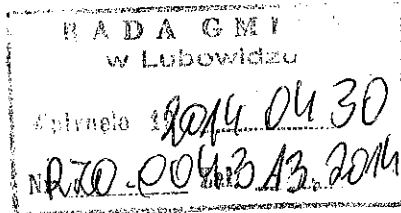 RADA GMI
w Lubowidzu
wpłynęło 2014 04 30
N RZO.0043.13.2014